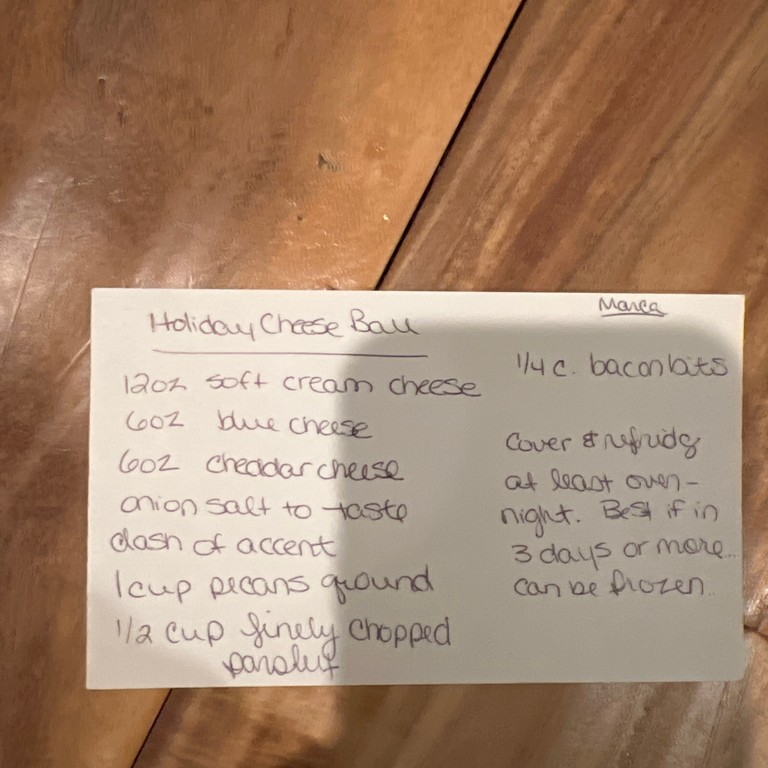 Holiday Cheese Ball
12oz soft cream cheese
6oz blue cheese
6oz cheddar cheese
onion salt to taste
dash of accent
1 cup pecans ground
1/2 cup finely chopped
parsley
1/4 c. bacon bits
Cover & refridg
at least over-
night. Best if in
3 days or more...
can be frozen..